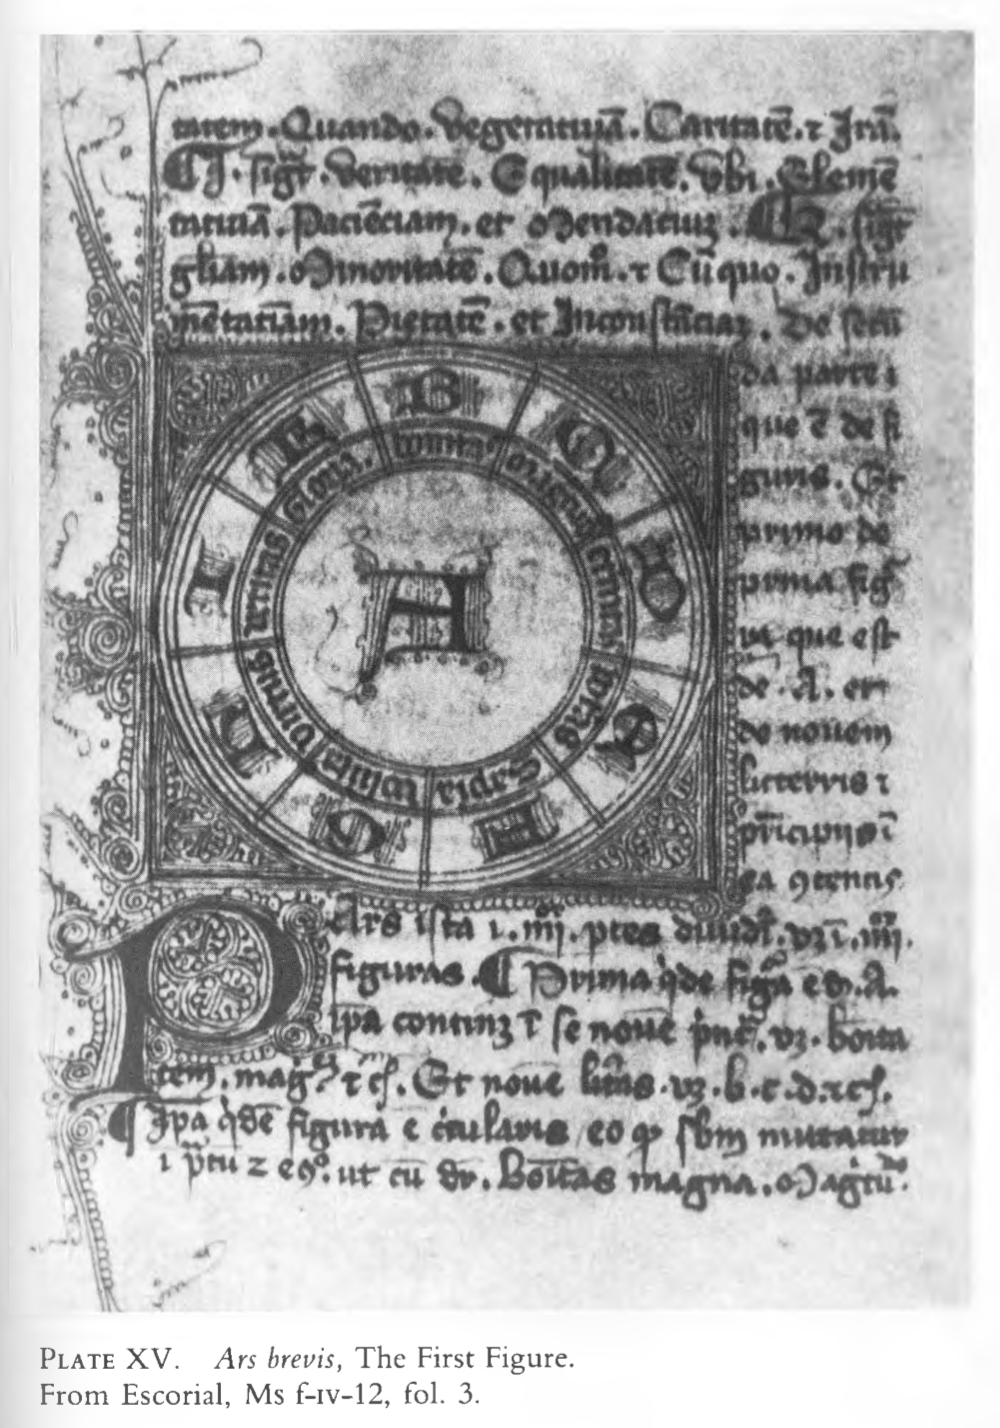 tatem. Quando. Vegetatiuā. Caritatē. ⁊ Irā.
¶ I. sigt̄. Veritatē. Equalitatē. Vbi. Elemē
tatiuā. Paciēciam. et Mendaciuʒ. ¶ K. sigt̄
gl̄iam. Minoritatē. Quom̊. ⁊ Cū quo. Instru
mētatiuam. Pietatē. et Inconstāciaʒ. De secū
da parte ⁊
que ē de fi
guris. Et
primo de
prima fig
ura que est
de .A. et
de nouem
litteris ⁊
prīcipijs ī
ea ꝯtentis
B
C
D
E
F
G
H
I
K
bonitas
magnitudo
eternitas
potestas
Sapīa
volūtas
virtus
veritas
Gloria.
A
PArs ista ī .iiij. ptes diuidit̄. vʒ ī .iiij.
figuras. ¶ Prima q̇dē figa ē d̄. A.
Ip̄a continʒ ī se nouē ṗnc̄. vʒ. bonita
tem. mag. ⁊ cꝭ. Et nouē litt̄as. vʒ. b. c. d. ⁊ cꝭ.
¶ Ip̄a q̇dē figura ē circularis eo ꝙ sb̄m mutatur
ī p̄tū z eꝯ. ut cū dr̄. Bonitas magna. Magtū.
PLATE XV. Ars brevis, The First Figure.
From Escorial, Ms f-IV-12, fol. 3.